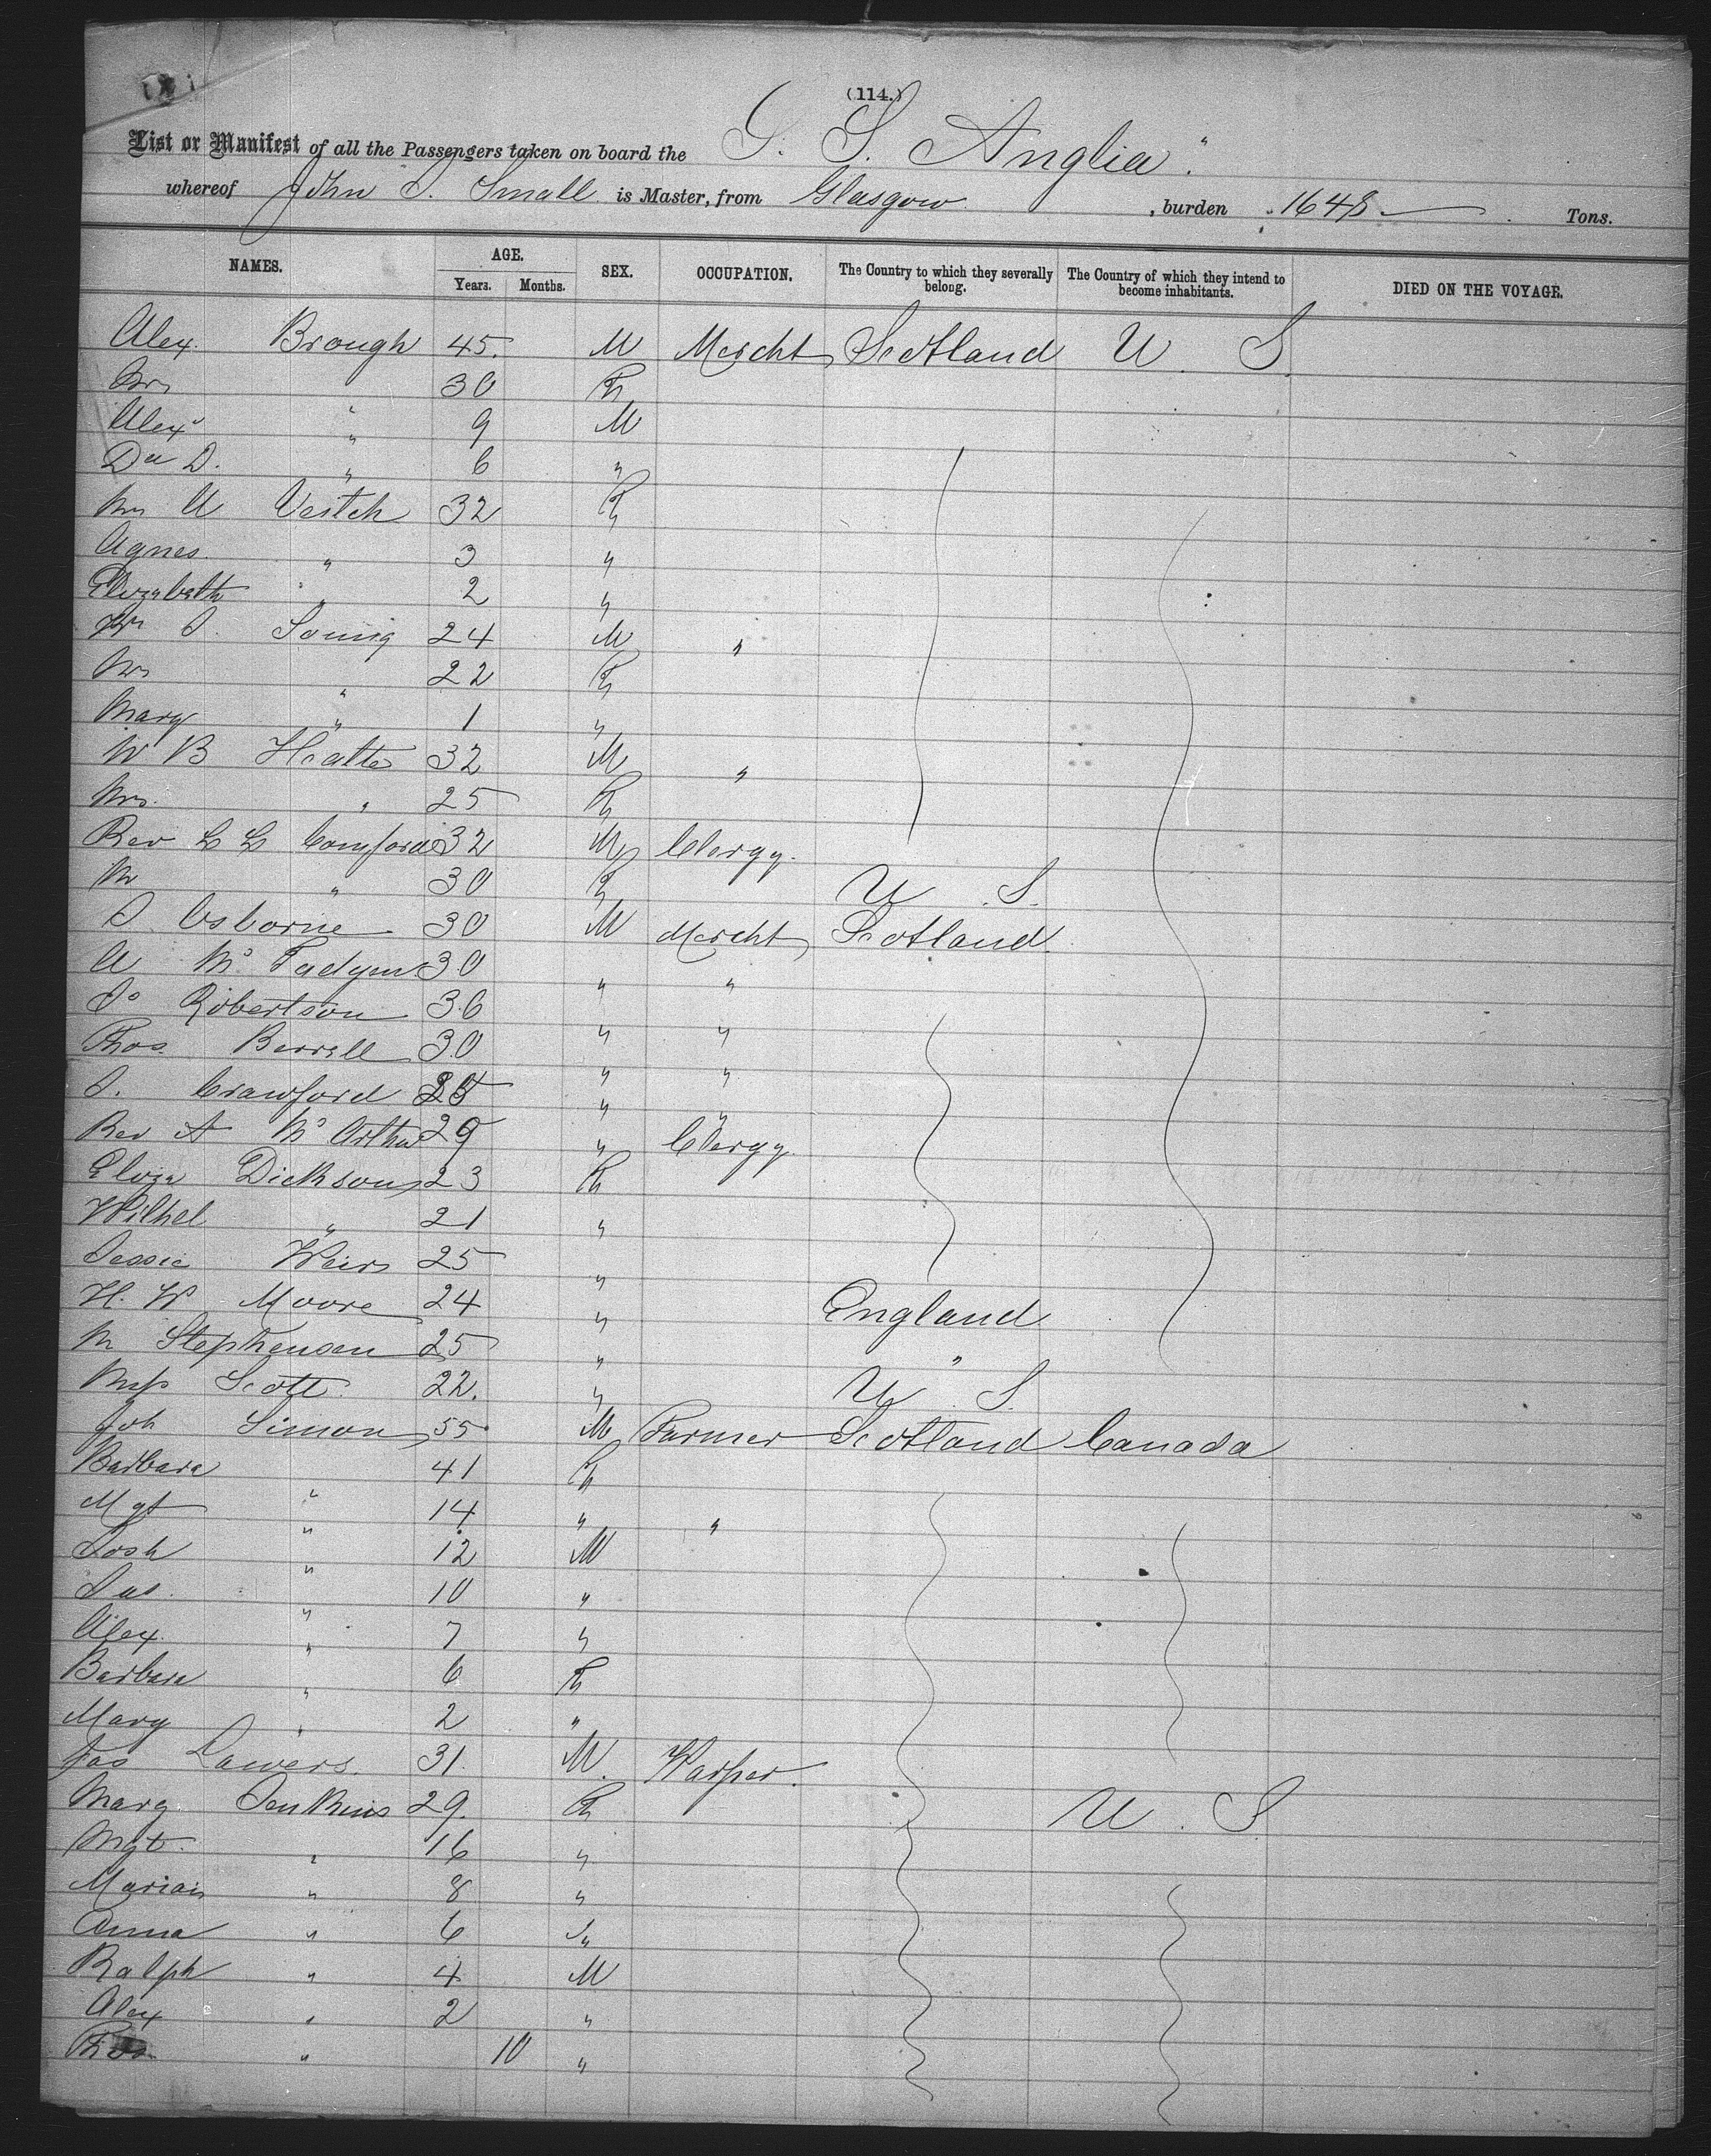 (114.)
List or Manifest of all the Passengers taken on board the S. S. Anglia "
whereof John S. Small is Master, from Glasgow , burden 1648 Tons.
NAMES. AGE. Years. Months. SEX. OCCUPATION. The Country to which they severally belong. The Country of which they intend to become inhabitants. DIED ON THE VOYAGE.
Alex. Brough 45. M Mercht Scotland U. S.
Mrs " 30 F
Alex " 9 M
D. " 6 "
Mrs A Veitch 32 F
Agnes " 3 "
Elizabeth " 2 "
24 M "
Mrs " 22 F
Mary " 1 "
W B 32 M "
Mrs. " 25 F
Rev 32 M Clergy.
" 30 F U. S.
J. Osborne 30 M Mercht Scotland
A Mc Fadyen 30 " "
Jo Robertson 36 " "
Thos. 30 " "
J. Crawford " "
Rev A Mc Arthur 29 " Clergy.
Eliza Dickson 23 F
" 21 "
Jessie Weir 25 "
H. W Moore 24 " England
M Stephenson 25 " "
Miss Scott 22. " U. S.
Joh Simon 55 M Farmer Scotland Canada
Barbara " 41 F
Mgt " 14 " "
Josh " 12 M
Jas. " 10 "
Alex. " 7 "
Barbara " 6 F
Mary " 2 "
Jas Lawers. 31. M. Warper.
Marg Jenkins 29. F U. S
Mgt. " 16 "
Marian " 8 "
Anna " 6 "
Ralph " 4 M
Alex " 2 "
Thos " 10 "